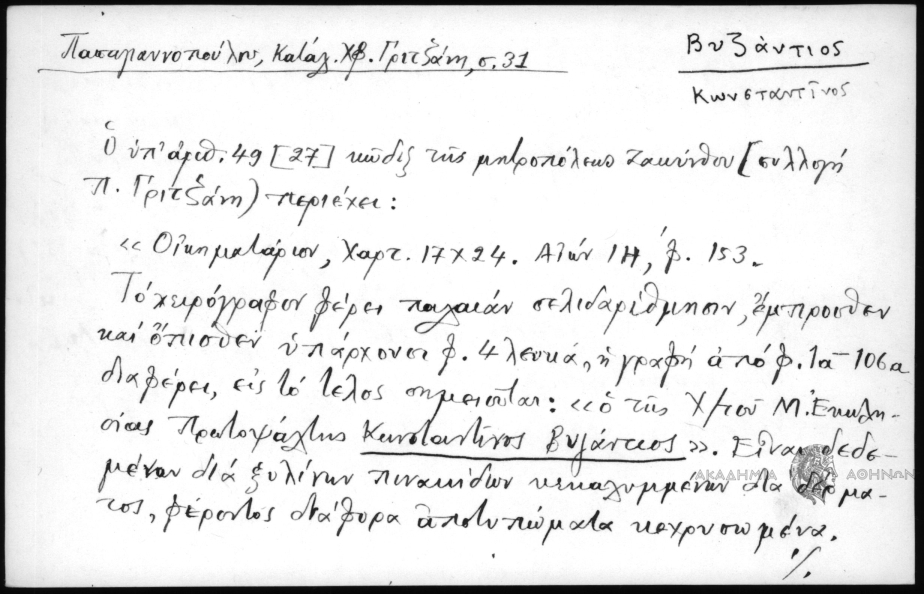 Παπαγιαννοπούλου, Κατάλ. Χφ. Γριτσάνη, σ. 31
Βυζάντιος
Κωνσταντῖνος
Ὁ ὑπ' ἀριθ. 49 [27] κῶδιξ τῆς μητροπόλεως Ζακύνθου [συλλογή
Π. Γριτσάνη) περιέχει:
«Οἰκηματάριον, Χαρτ. 17×24. Αἰών ΙΗ΄, φ. 153.
Τό χειρόγραφον φέρει παλαιάν σελιδαρίθμησιν, ἔμπροσθεν
καί ὄπισθεν ὑπάρχουσι φ. 4 λευκά, ἡ γραφή ἀπό φ. 1α-106α
διαφέρει, εἰς τό τέλος σημειοῦται: «ὁ τῆς Χ/τοῦ Μ. Ἐκκλη-
σίας Πρωτοψάλτης Κωνσταντῖνος Βυζάντιος». Εἶναι δεδε-
μένον διά ξυλίνων πινακίδων κεκαλυμμένων διά δέρμα-
τος, φέροντος διάφορα ἀποτυπώματα κεχρυσωμένα.
./.
ΑΚΑΔΗΜΙΑ ΑΘΗΝΩΝ